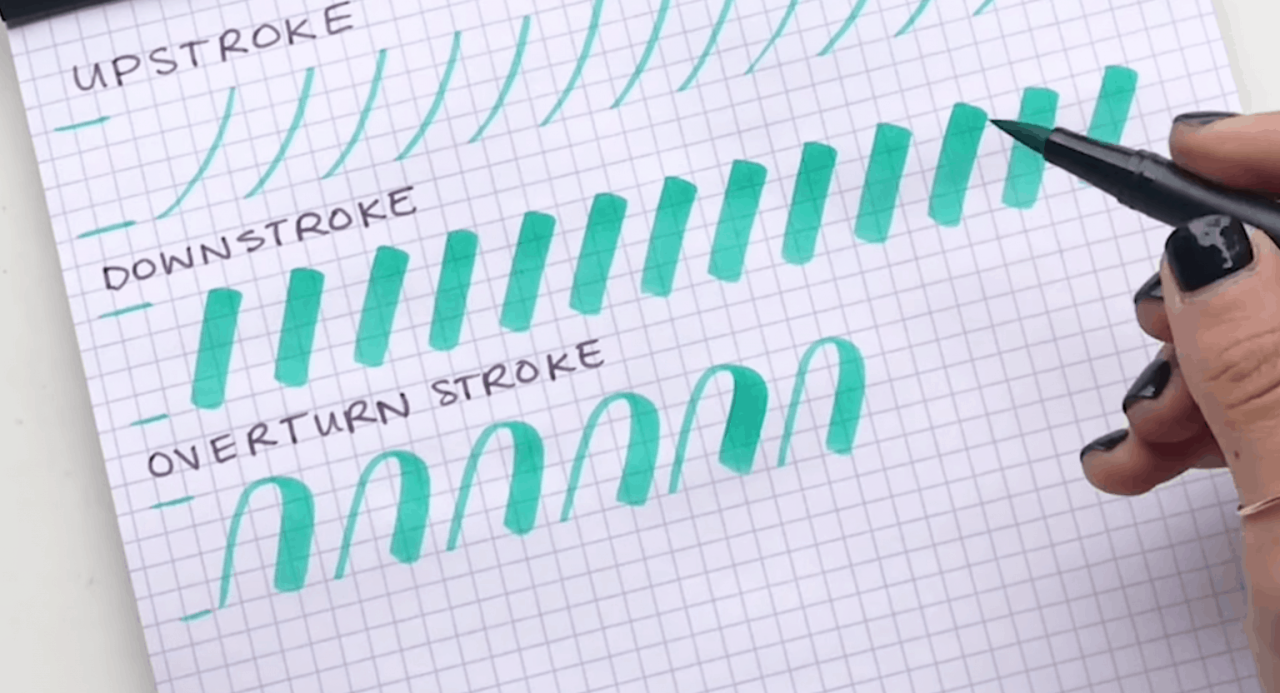 UPSTROKE
DOWNSTROKE
OVERTURN STROKE